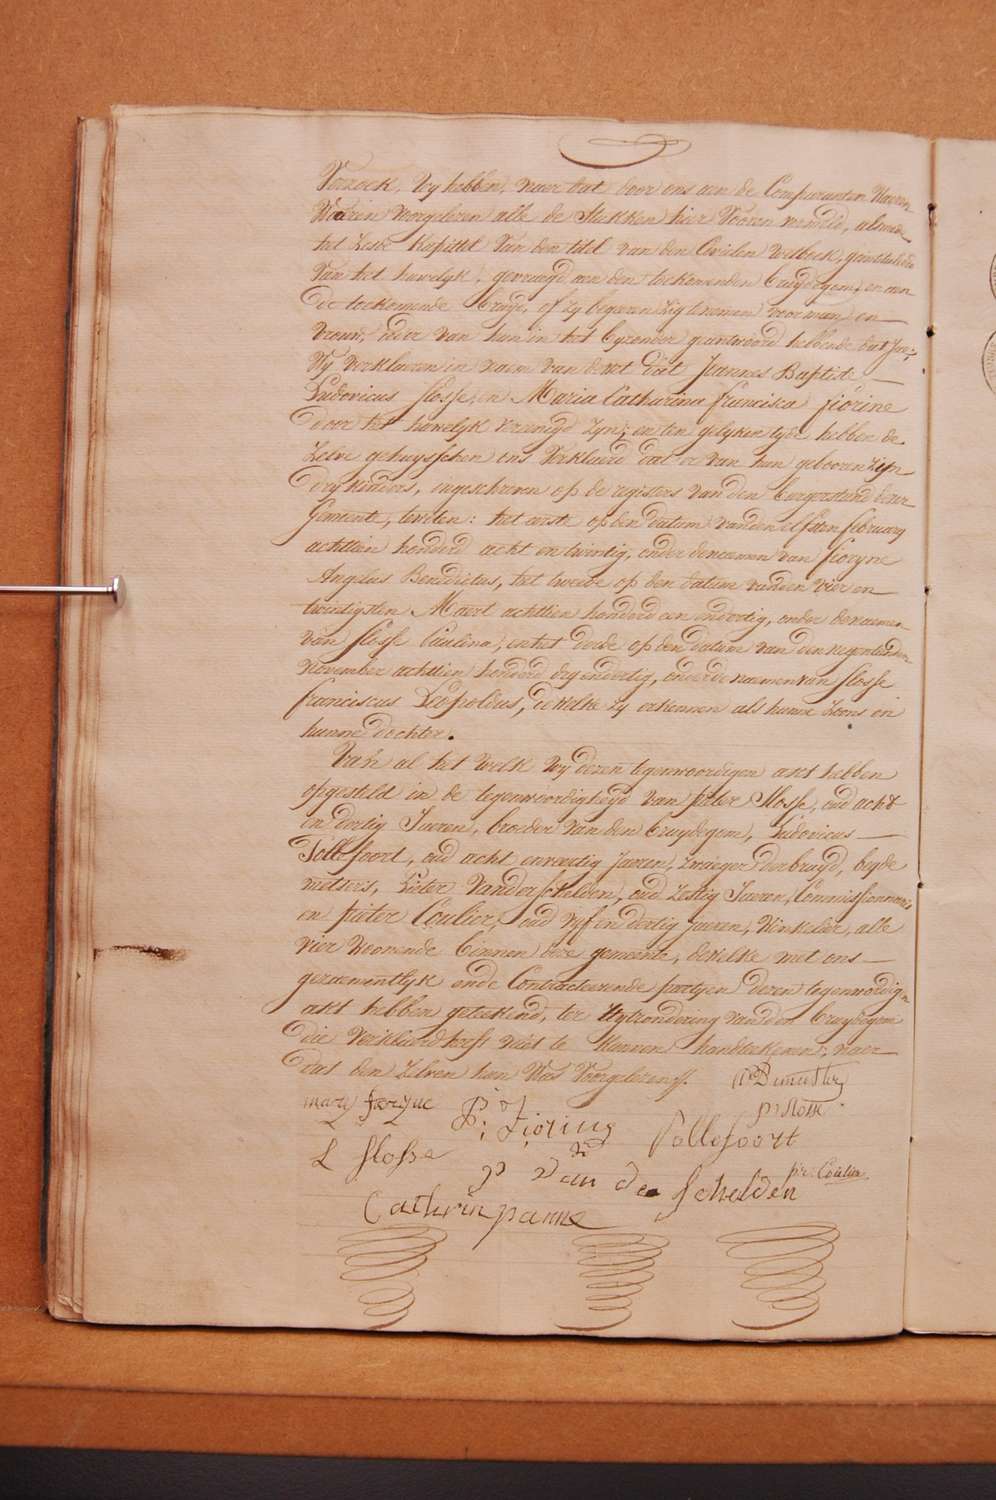 Verzoek, Wy hebben, naer dat door ons aen de Comparanten
Waeren voorgelezen alle de Stukken hier vooren vermeld, alsmede
het Zesde Kapittel Van den titel van den Civielen Wetboek, geintituleerd
Van het huwelyk, gevraegd aen den toekomenden Bruydegom en aen
De toekomende Bruyd, of zy begeeren zig te nemen voor man en
Vrouw, ieder van hun in het byzonder geantwoord hebbende dat Jae;
Wy verklaeren in naem van de wet dat Joannes Baptiste
Ludovicus Slosse, en Maria Catharina Francisca Fiorine
door het huwelyk vereenigd zyn; en ten gelyken tyde hebben de
Zelve gehuysschen ons Verklaerd dat er van hun gebooren zyn
Dry kinders, ingeschreven op de registers van den burgerstand dezer
Gemeente, te weten: het eerste op den datum van den elfsten february
achttien honderd acht en twintig, onder de naemen van Fioryne
Angelus Benedictus, het tweede op den datum van den vier en
twintigsten Maert achttien honderd een en dertig, onder de naemen
van Slosse Paulina, en het derde op den datum van den negentienden
November achttien honderd dry en dertig, onder de naemen van Slosse
Franciscus Leopoldus, de welke zy erkennen als hunne Zoons en
hunne dochter.
Van al het welk wy dezen tegenwoordigen akt hebben
opgesteld in de tegenwoordigheyd van Pieter Slosse, oud acht
en dertig Jaeren, broeder van den bruydegom, Ludovicus
Tollefoort, oud acht en veertig Jaeren, Zwaeger der bruyd, beyde
metsers, Pieter Vanderschelden, oud zestig Jaeren, Commissionnaris
en Pieter Coulier, oud vyf en dertig jaeren, Winkelier, alle
vier woonende binnen deze gemeente, dewelke met ons
gezaementlyk ende Contracteerende partyen dezen tegenwoordigen
akt hebben geteekend, ter uytzondering van den bruydegom
die Verklaerd heeft niet te konnen handteekenen; naer
dat den Zelven hun Was Voorgelezen.
mary foryne P: Fioring Pr Slosse
L Slosse Tollefoort
P Van der Schelden pr: Coulier
Cathrin panne